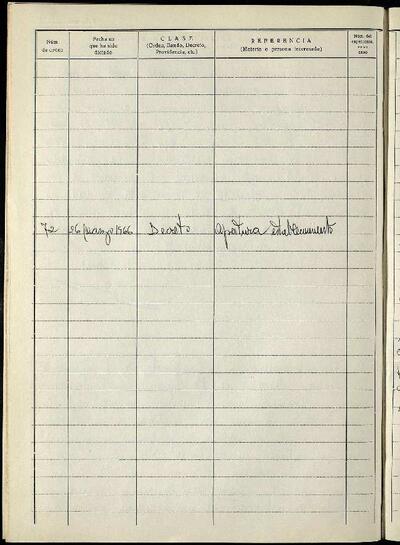 Núm. de orden
Fecha en que ha sido dictado
CLASE (Orden, Bando, Decreto, Providencia, etc.)
REFERENCIA (Materia o persona interesada)
Núm. del expediente
72 26/marzo 1966 Decreto Apertura establecimiento